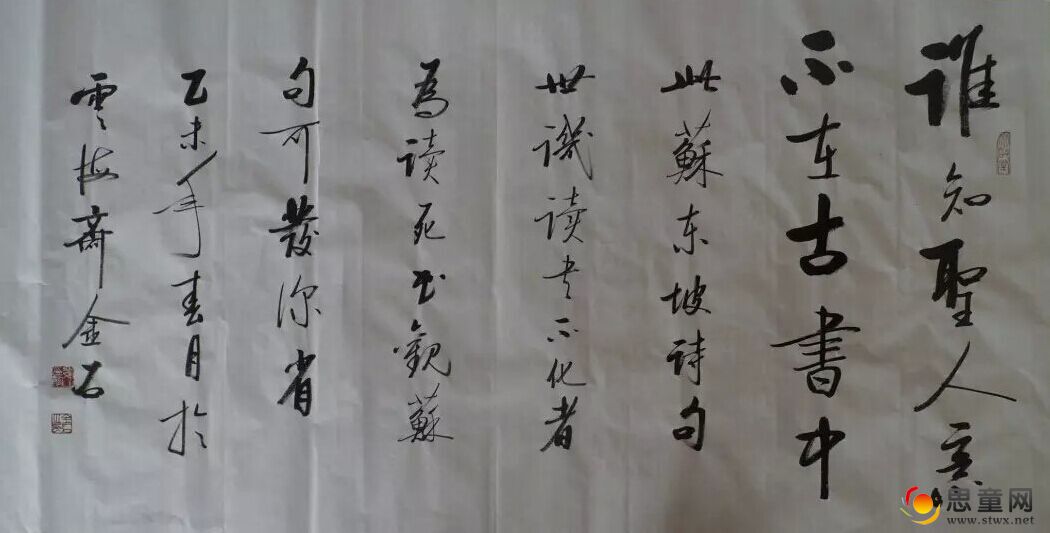 誰知聖人意
不在古書中
此蘇东坡诗句
世讥读书不化者
為读死书觀蘇
句可發深省
乙未年春月於
雲梅齋金石
思童网
www.stwx.net